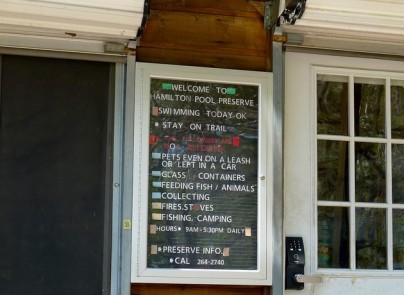 WELCOME TO
HAMILTON POOL PRESERVE
SWIMMING TODAY OK
STAY ON TRAIL
PETS EVEN ON A LEASH
OR LEFT IN A CAR
GLASS CONTAINERS
FEEDING FISH / ANIMALS
COLLECTING
FIRES, STOVES
FISHING, CAMPING
HOURS 9AM-5:30PM DAILY
PRESERVE INFO.
CAL 264-2740